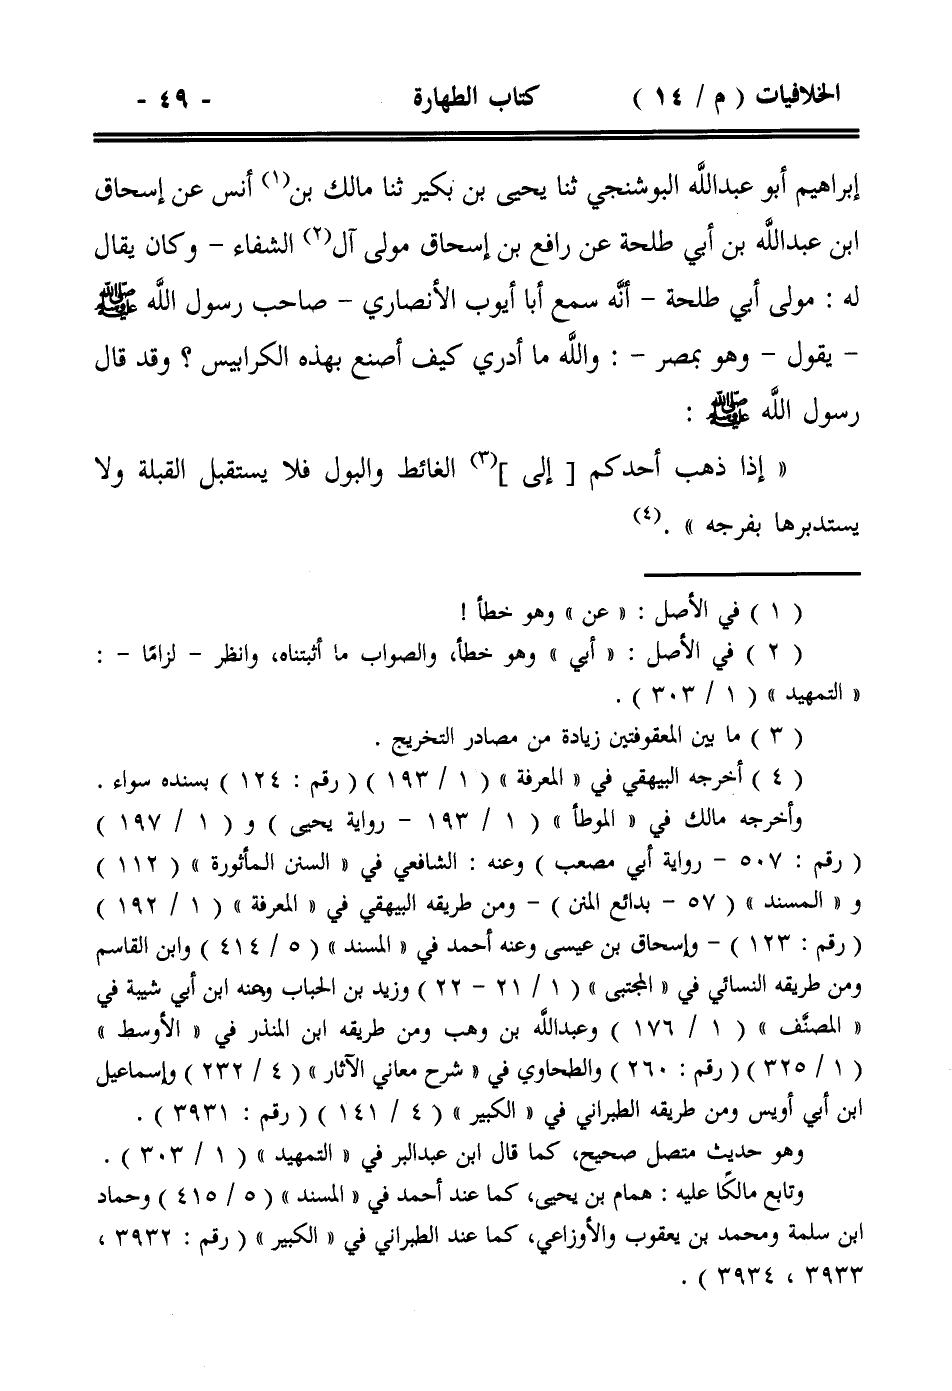 الخلافيات ( م / ١٤ ) كتاب الطهارة - ٤٩ -
إبراهيم أبو عبدالله البوشنجي ثنا يحيى بن بكير ثنا مالك بن(١) أنس عن إسحاق
ابن عبدالله بن أبي طلحة عن رافع بن إسحاق مولى آل(٢) الشفاء - وكان يقال
له : مولى أبي طلحة - أنَّه سمع أبا أيوب الأنصاري - صاحب رسول الله ﷺ
- يقول - وهو بمصر - : والله ما أدري كيف أصنع بهذه الكرابيس ؟ وقد قال
رسول الله ﷺ :
« إذا ذهب أحدكم [ إلى ](٣) الغائط والبول فلا يستقبل القبلة ولا
يستدبرها بفرجه » .(٤)
( ١ ) في الأصل : « عن » وهو خطأ !
( ٢ ) في الأصل : « أبي » وهو خطأ، والصواب ما أثبتناه، وانظر - لزامًا - :
« التمهيد » ( ١ / ٣٠٣ ) .
( ٣ ) ما بين المعقوفتين زيادة من مصادر التخريج .
( ٤ ) أخرجه البيهقي في « المعرفة » ( ١ / ١٩٣ ) ( رقم : ١٢٤ ) بسنده سواء .
وأخرجه مالك في « الموطأ » ( ١ / ١٩٣ - رواية يحيى ) و ( ١ / ١٩٧ )
( رقم : ٥٠٧ - رواية أبي مصعب ) وعنه : الشافعي في « السنن المأثورة » ( ١١٢ )
و « المسند » ( ٥٧ - بدائع المنن ) - ومن طريقه البيهقي في « المعرفة » ( ١ / ١٩٢ )
( رقم : ١٢٣ ) - وإسحاق بن عيسى وعنه أحمد في « المسند » ( ٥ / ٤١٤ ) وابن القاسم
ومن طريقه النسائي في « المجتبى » ( ١ / ٢١ - ٢٢ ) وزيد بن الحباب وعنه ابن أبي شيبة في
« المصنَّف » ( ١ / ١٧٦ ) وعبدالله بن وهب ومن طريقه ابن المنذر في « الأوسط »
( ١ / ٣٢٥ ) ( رقم : ٢٦٠ ) والطحاوي في « شرح معاني الآثار » ( ٤ / ٢٣٢ ) وإسماعيل
ابن أبي أويس ومن طريقه الطبراني في « الكبير » ( ٤ / ١٤١ ) ( رقم : ٣٩٣١ ) .
وهو حديث متصل صحيح، كما قال ابن عبدالبر في « التمهيد » ( ١ / ٣٠٣ ) .
وتابع مالكًا عليه : همام بن يحيى، كما عند أحمد في « المسند » ( ٥ / ٤١٥ ) وحماد
ابن سلمة ومحمد بن يعقوب والأوزاعي، كما عند الطبراني في « الكبير » ( رقم : ٣٩٣٢ ،
٣٩٣٣ ، ٣٩٣٤ ) .